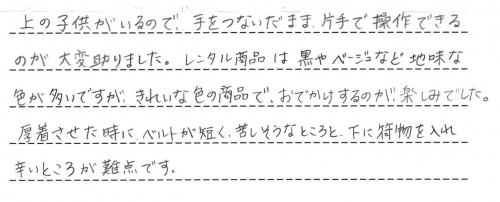 上の子供がいるので、手をつないだまま、片手で操作できる
のが大変助りました。レンタル商品は黒やベージュなど地味な
色が多いですが、きれいな色の商品で、おでかけするのが、楽しみでした。
厚着させた時に、ベルトが短く、苦しそうなところと、下に荷物を入れ
辛いところが難点です。